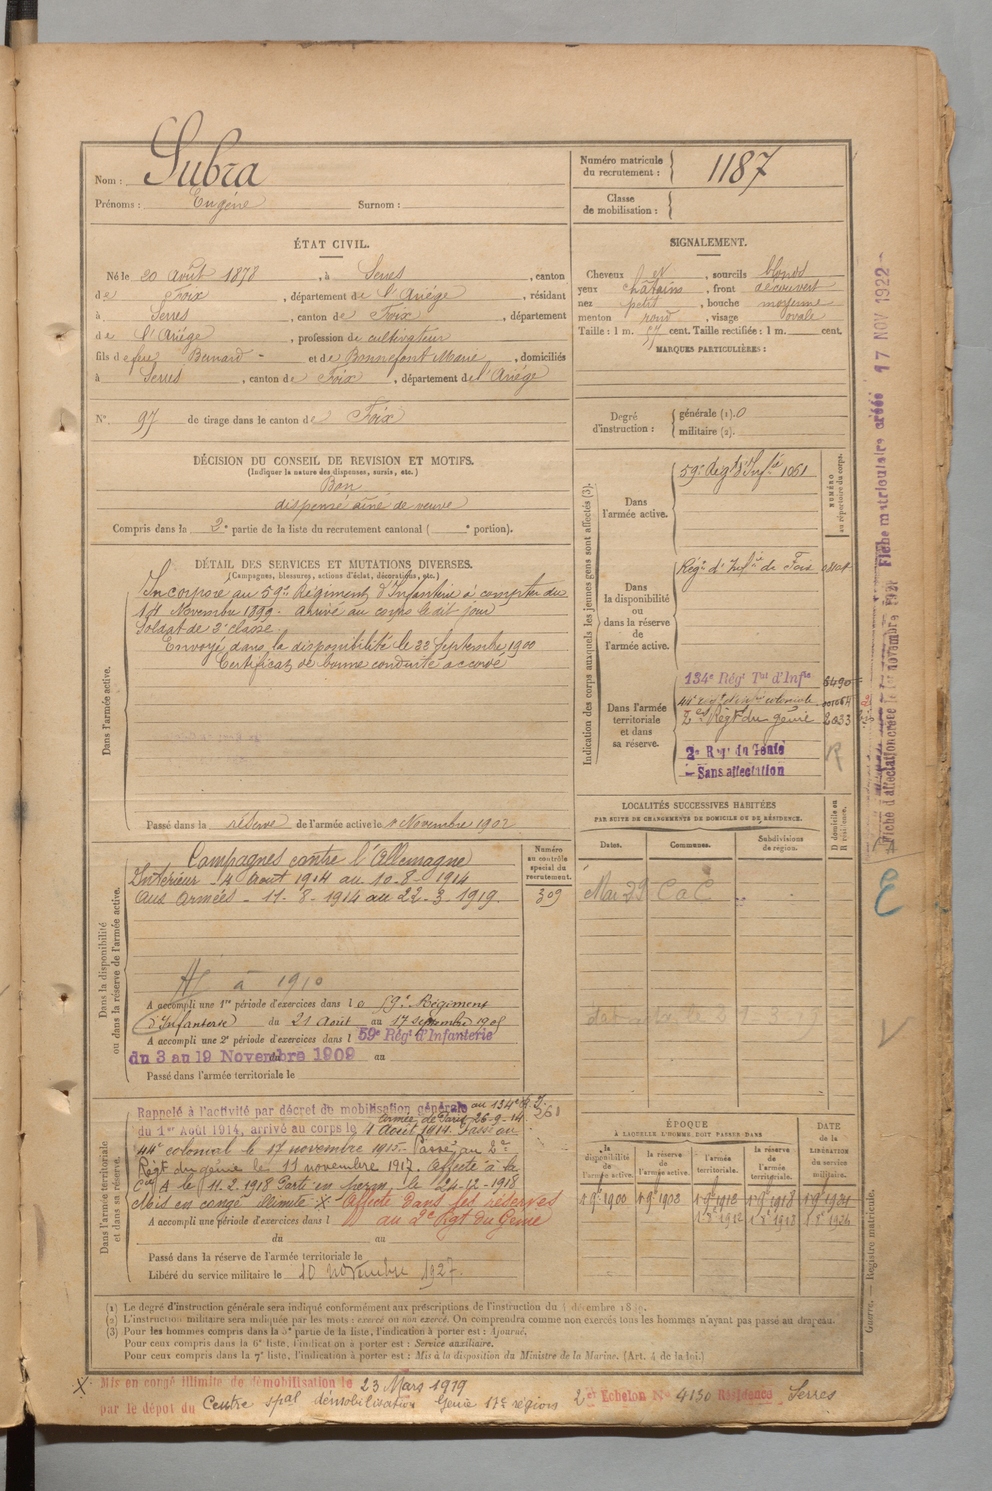 Nom : Subra
Prénoms : Eugène Surnom :
Numéro matricule du recrutement : 1187
Classe de mobilisation :
ÉTAT CIVIL.
Né le 20 Août 1878, à Serres, canton
de Foix, département de l'Ariège, résidant
à Serres, canton de Foix, département
de l'Ariège, profession de cultivateur
fils de feu Bernard - et de Bonnefont Marie, domiciliés
à Serres, canton de Foix, département de l'Ariège
N°. 97 de tirage dans le canton de Foix
SIGNALEMENT.
Cheveux et, sourcils blonds
yeux châtains, front découvert
nez petit, bouche moyenne
menton rond, visage ovale
Taille : 1 m. 57 cent. Taille rectifiée : 1 m. cent.
MARQUES PARTICULIÈRES :
Degré d'instruction : générale (1). 0
militaire (2).
DÉCISION DU CONSEIL DE REVISION ET MOTIFS.
(Indiquer la nature des dispenses, sursis, etc.)
Bon
dispensé aîné de veuve
Compris dans la 2e partie de la liste du recrutement cantonal ( e portion).
DÉTAIL DES SERVICES ET MUTATIONS DIVERSES.
(Campagnes, blessures, actions d'éclat, décorations, etc.)
Dans l'armée active.
Incorporé au 59e Régiment d'Infanterie à compter du
14 Novembre 1899. Arrivé au corps le dit jour
Soldat de 2e classe.
Envoyé dans la disponibilité le 22 Septembre 1900
Certificat de bonne conduite accordé
Passé dans la réserve de l'armée active le 1 Novembre 1902
Indication des corps auxquels les jeunes gens sont affectés (3).
NUMÉRO au répertoire du corps.
Dans l'armée active.
59e Régt d'Infie 1061
Dans la disponibilité ou dans la réserve de l'armée active.
Régt d'Infie de Foix
Dans l'armée territoriale et dans sa réserve.
134e Régt Tal d'Infie
44e régt d'infie coloniale
2e Régt du génie 2033
2e Regt du Génie
Sans affectation
LOCALITÉS SUCCESSIVES HABITÉES
PAR SUITE DE CHANGEMENTS DE DOMICILE OU DE RÉSIDENCE.
Dates. Communes. Subdivisions de région. D domicile ou R résidence.
Mai 29 CaC
Dans la disponibilité ou dans la réserve de l'armée active.
Numéro au contrôle spécial du recrutement.
309
Campagnes contre l'Allemagne
Intérieur - 4 Août 1914 au 10-8-1914
aux Armées - 11-8-1914 au 22-3-1919.
à 1910
A accompli une 1re période d'exercices dans le 59e Régiment
d'Infanterie du 21 Août au 17 septembre 1905
A accompli une 2e période d'exercices dans l 59e Régt d'Infanterie
du 3 au 19 Novembre 1909 au
Passé dans l'armée territoriale le
Dans l'armée territoriale et dans sa réserve.
Rappelé à l'activité par décret de mobilisation générale au 134e R.I.
du 1er Août 1914, arrivé au corps le 4 Août 1914. Passé au
armée de Paris 26-9-14
261
44e colonial le 17 novembre 1915. Passé au 2e
Régt du génie le 11 novembre 1917. Affecté à la
Cie A le 11.2.1918 Parti en perm. le 24-12-1918
Mis en congé illimité X Affecté dans les réserves
au 2e Rgt du Génie
A accompli une période d'exercices dans l
du au
Passé dans la réserve de l'armée territoriale le
Libéré du service militaire le 10 novembre 1927.
ÉPOQUE
À LAQUELLE L'HOMME DOIT PASSER DANS
la disponibilité de l'armée active. la réserve de l'armée active. l'armée territoriale. la réserve de l'armée territoriale.
DATE de la LIBÉRATION du service militaire.
1 9e 1900 1 9e 1902 1 9e 1912 1 9e 1918 1 9e 1924
(1) Le degré d'instruction générale sera indiqué conformément aux prescriptions de l'instruction du décembre
(2) L'instruction militaire sera indiquée par les mots : exercé ou non exercé. On comprendra comme non exercés tous les hommes n'ayant pas passé au drapeau.
(3) Pour les hommes compris dans la 5e partie de la liste, l'indication à porter est : Ajourné.
Pour ceux compris dans la 6e liste, l'indication à porter est : Service auxiliaire.
Pour ceux compris dans la 7e liste, l'indication à porter est : Mis à la disposition du Ministre de la Marine. (Art. 4 de la loi.)
X Mis en congé illimité de démobilisation le 23 Mars 1919
par le dépot du Centre spal démobilisation Génie 17e région
2e Echelon N° 4130 Résidence Serres
Fiche matriculaire créée 17 NOV 1922
Guerre. — Registre matricule.